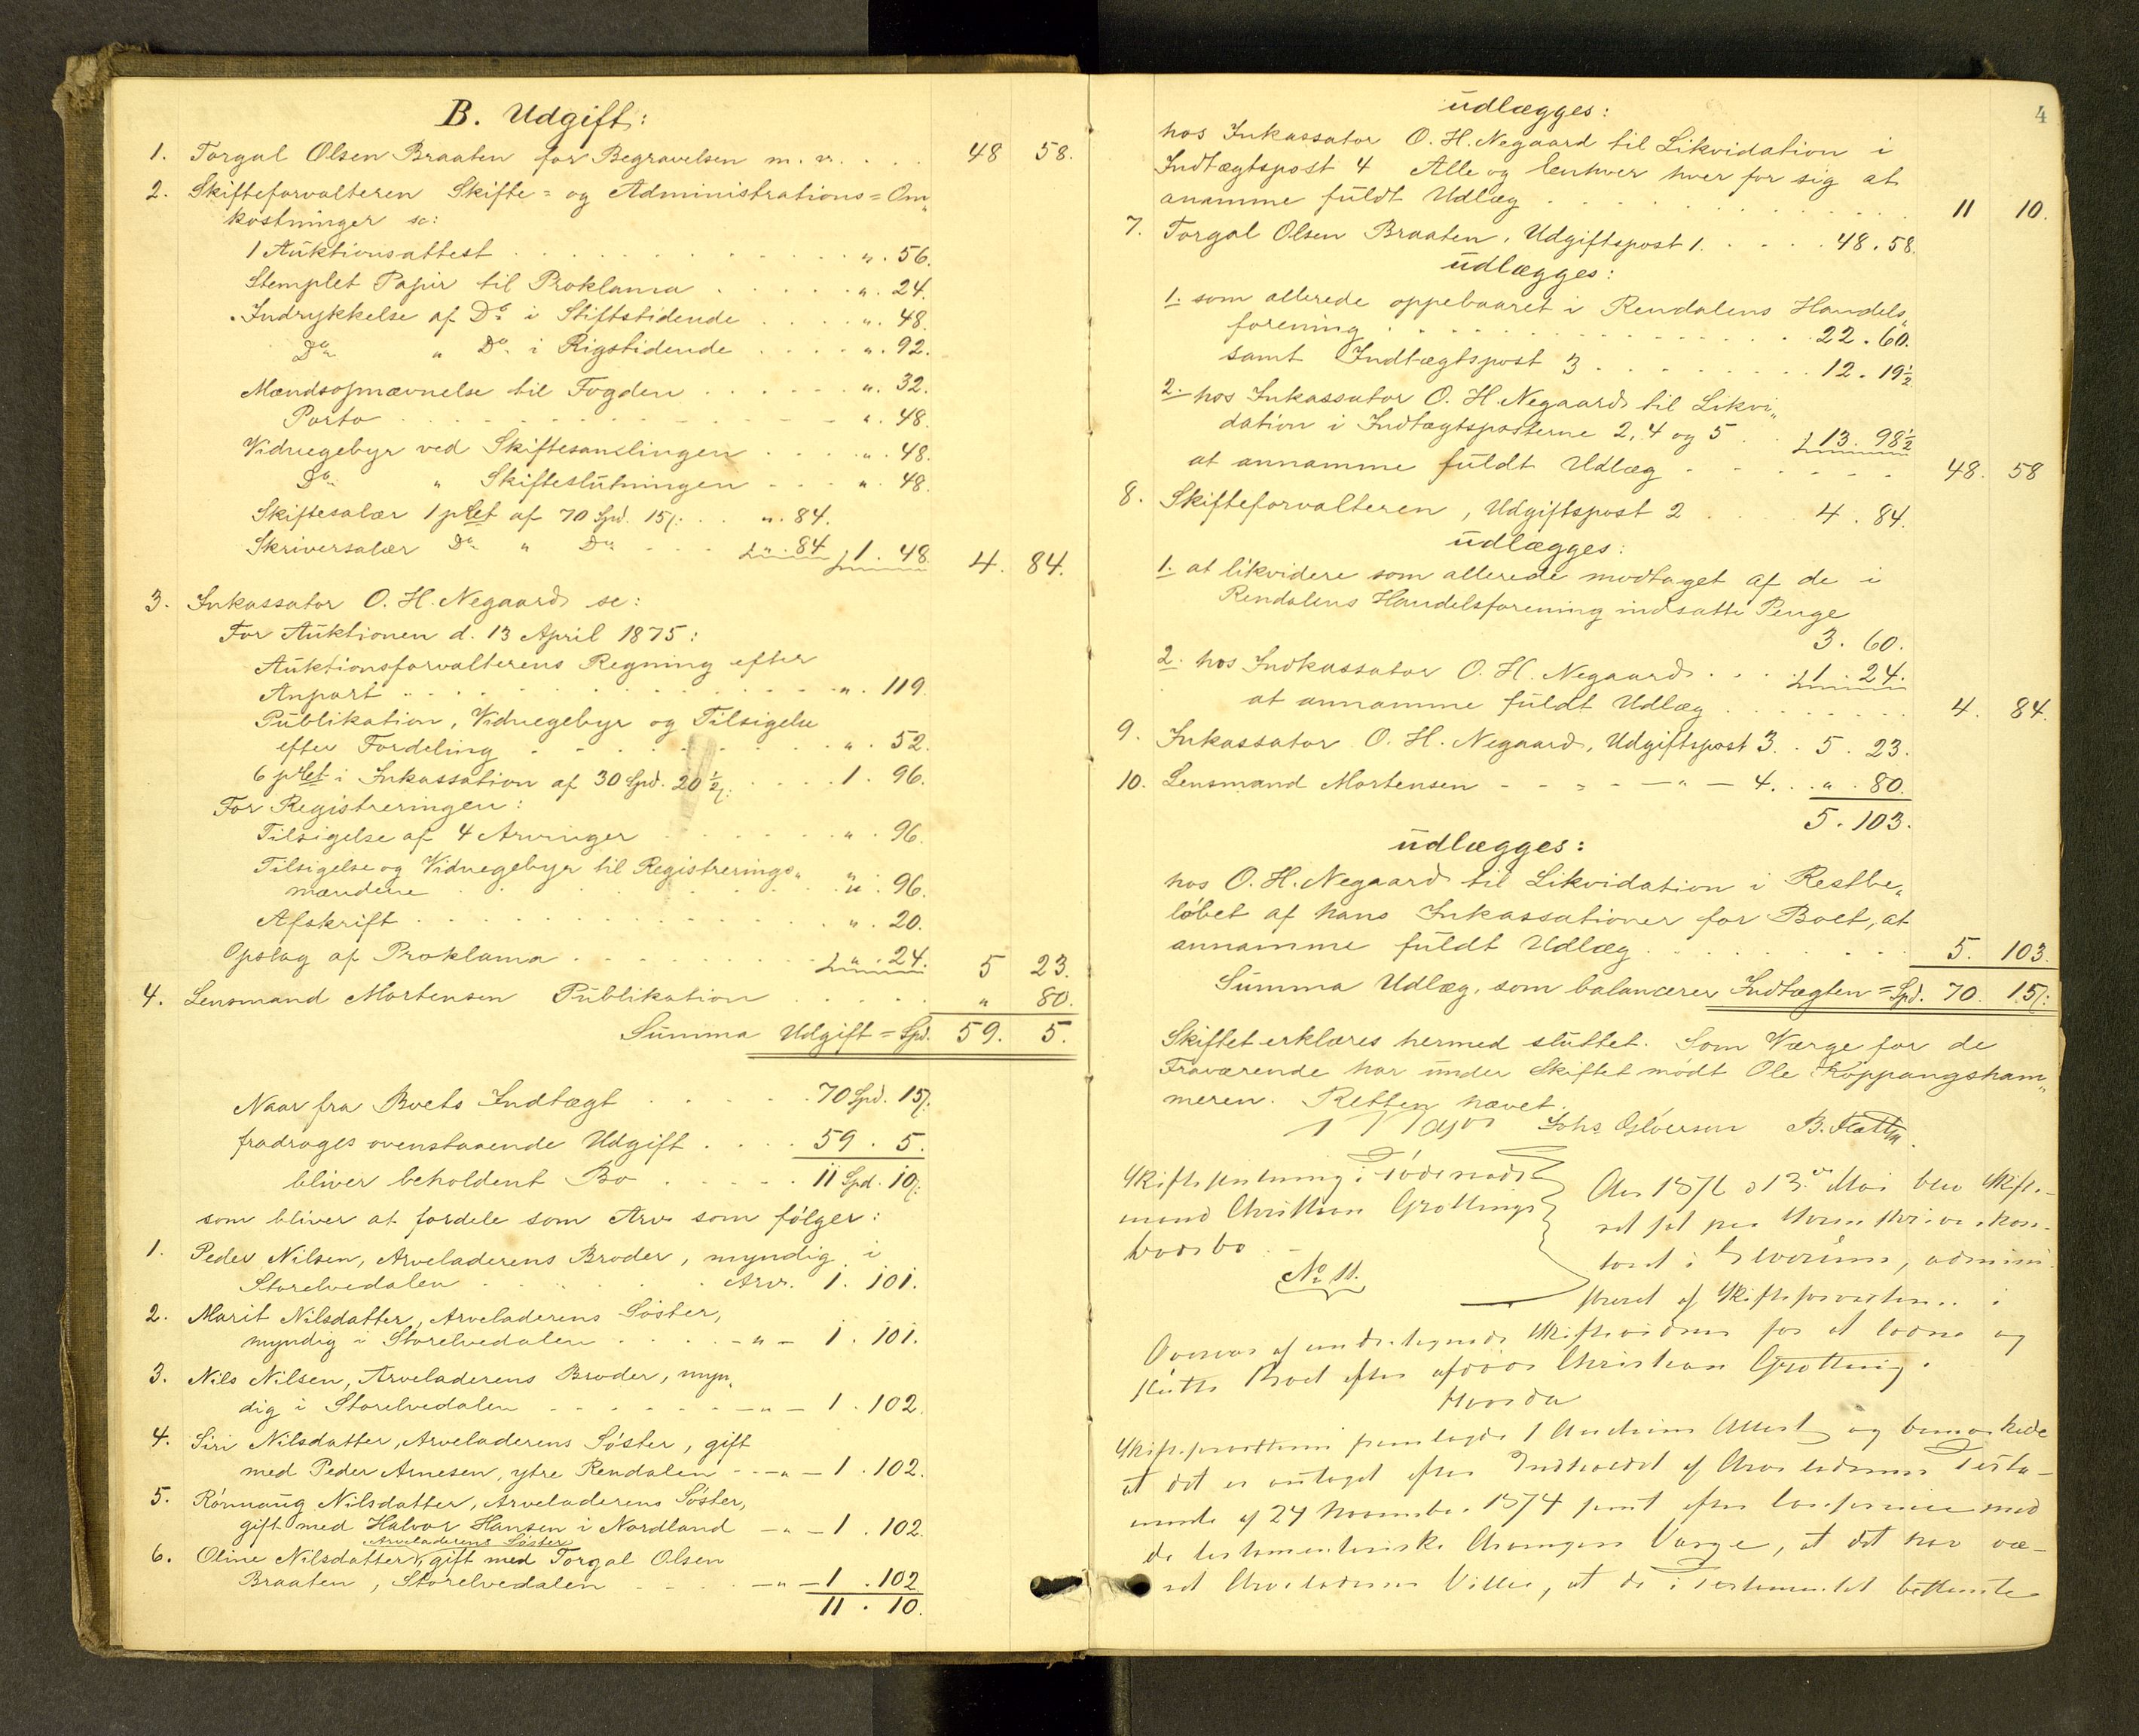 B. Udgift:
1. Torgal Olsen Braaten for Begravelsen m. v. . . . 48 58.
2. Skifteforvalteren Skifte= og Administrations=Om„
kostninger se:
1 Auktionsattest . . . „. 56.
Stemplet Papir til Proklama . . . „. 24.
Indrykkelse af Do i Stiftstidende . . . „. 48.
Do „ Do i Rigstidende . . . „. 92.
Mandsopnævnelse til Fogden . . . „. 32.
Porto . . . „. 48.
Vidnegebyr ved Skiftesamlingen . . . „. 48.
Do „ Skifteslutningen . . . „. 48.
Skiftesalær 1 pCt af 70 Spd. 15/: . . „. 84.
Skriversalær Do „ Do . . . „. 84 1. 48. 4. 84.
3. Inkassator O. H. Negaard se:
For Auktionen d. 13 April 1875:
Auktionsforvalterens Regning efter
Anpart . . . „. 119.
Publikation, Vidnegebyr og Tilsigelse
efter Fordeling . . . „. 52.
6 pCt i Inkassation af 30 Spd. 20½/: . . . 1. 96.
For Registreringen:
Tilsigelse af 4 Arvinger . . . „. 96.
Tilsigelse og Vidnegebyr til Registrerings„
mændene . . . „. 96.
Afskrift . . . „. 20.
Opslag af Proklama . . . „. 24. 5 23.
4. Lensmand Mortensen Publikation . . . „ 80.
Summa Udgift = Spd. 59. 5.
Naar fra Boets Indtægt . . . 70 Spd. 15/:
fradrages ovenstaaende Udgift . . . 59. 5.
bliver beholdent Bo . . . 11 Spd. 10/:
som bliver at fordele som Arv som følger:
1. Peder Nilsen, Arveladerens Broder, myndig i
Storelvedalen . . . Arv. 1. 101.
2. Marit Nilsdatter, Arveladerens Søster,
myndig i Storelvedalen . . . - „ - 1. 101.
3. Nils Nilsen, Arveladerens Broder, myn„
dig i Storelvedalen - - - - „ - 1. 102.
4. Siri Nilsdatter, Arveladerens Søster, gift
med Peder Arnesen, ytre Rendalen - - „ - 1. 102.
5. Rønnaug Nilsdatter, Arveladerens Søster,
gift med Halvor Hansen i Nordland - „ - 1. 102.
Arveladerens Søster
6. Oline Nilsdatter, gift med Torgal Olsen
Braaten, Storelvedalen - - - - „ - 1. 102
11. 10.
4
udlægges:
hos Inkassator O. H. Negaard til Likvidation i
Indtægtspost 4 Alle og Enhver hver for sig at
anamme fuldt Udlæg . . . 11 10.
7. Torgal Olsen Braaten, Udgiftspost 1. . . . 48. 58.
udlægges:
1. som allerede oppebaaret i Rendalens Handels„
forening . . . 22. 60.
samt Indtægtspost 3 . . . 12. 19½
2. hos Inkassator O. H. Negaard til Likvi„
dation i Indtægtsposterne 2, 4 og 5 . . 13. 98½
at annamme fuldt Udlæg - - - 48. 58
8. Skifteforvalteren, Udgiftspost 2 . . . 4. 84.
udlægges:
1. at likvidere som allerede modtaget af de i
Rendalens Handelsforening indsatte Penge
3. 60.
2. hos Indkassator O. H. Negaard . . . 1. 24.
at annamme fuldt Udlæg . . . 4. 84.
9. Inkassator O. H. Negaard, Udgiftspost 3. . 5. 23.
10. Lensmand Mortensen - - - - „ - 4. . „. 80.
5. 103.
udlægges:
hos O. H. Negaard til Likvidation i Restbe„
løbet af hans Inkassationer for Boet, at
annamme fuldt Udlæg . . . 5. 103.
Summa Udlæg, som balancerer Indtægten = Spd. 70. 15/:
Skiftet erklæres hermed sluttet. Som Værge for de
Fraværende har under Skiftet mødt Ole Koppangsham„
meren. Retten hævet.
Johs Gløersen B.
Skifteslutning i Føderaads-
mand Christian Grøttings
Dødsbo.
No 11.
Aar 1876 d 13de Mai blev Skifte-
ret sat paa Sorenskriverkon-
toret i Elverum, admini-
streret af Skifteforvalteren i
Overvær af undertegnede Skiftevidner for at lodne og
slutte Boet efter afdøde Christian Grøtting.
Hvorda
Skifteforvalteren fremlagde 1 Auctions Attest og bemærkede
at det er antaget efter Indholdet af Arveladerens Testa-
mente af 24 November 1874 samt efter Conference med
de testamentariske Arvingers Værge, at det har væ-
ret Arveladerens Villie, at de i Testamentet bestemte